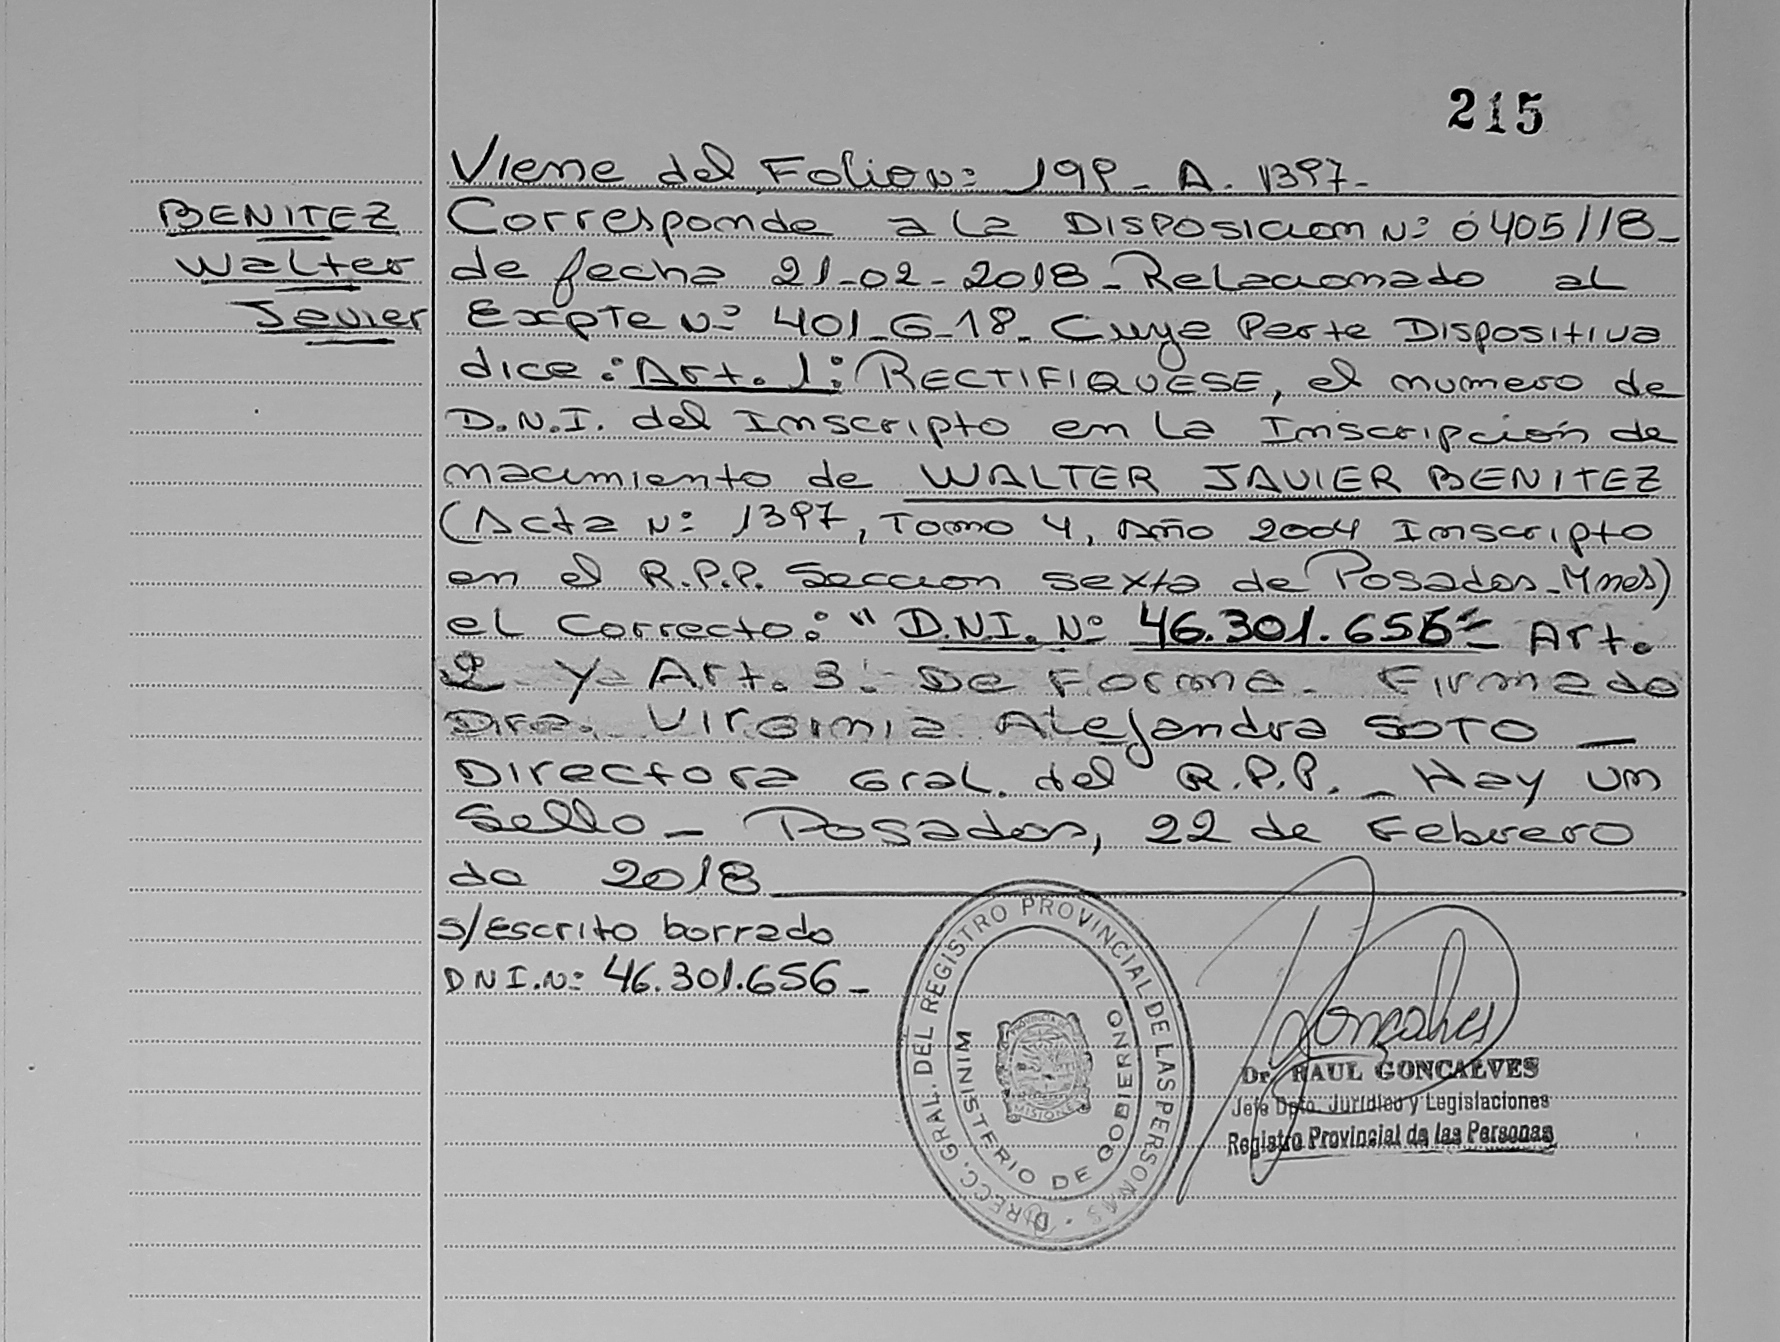 215
Viene del Folio Nº: 199_ A. 1397_
BENITEZ
Walter
Javier
Corresponde a la DISPOSICION Nº 0405/18_
de fecha 21-02-2018_ Relacionado al
Expte Nº 401_G_18_ Cuya Parte Dispositiva
dice: Art. 1: RECTIFIQUESE, el numero de
D.N.I. del Inscripto en la Inscripción de
nacimiento de WALTER JAVIER BENITEZ
(Acta Nº 1397, Tomo 4, Año 2004 Inscripto
en el R.P.P. Seccion sexta de Posadas_Mnes)
el Correcto: " D.N.I. Nº 46.301.656" Art.
2 y Art. 3: De Forma. Firmado
Dra. Virginia Alejandra SOTO _
Directora Gral. del R.P.P. _ Hay un
Sello _ Posadas, 22 de Febrero
de 2018
s/Escrito borrado
DNI.Nº 46.301.656_
DIRECC. GRAL. DEL REGISTRO PROVINCIAL DE LAS PERSONAS
MINISTERIO DE GOBIERNO
PROVINCIA DE
MISIONES
Goncalves
Dr. RAUL GONCALVES
Jefe Dpto. Jurídico y Legislaciones
Registro Provincial de las Personas